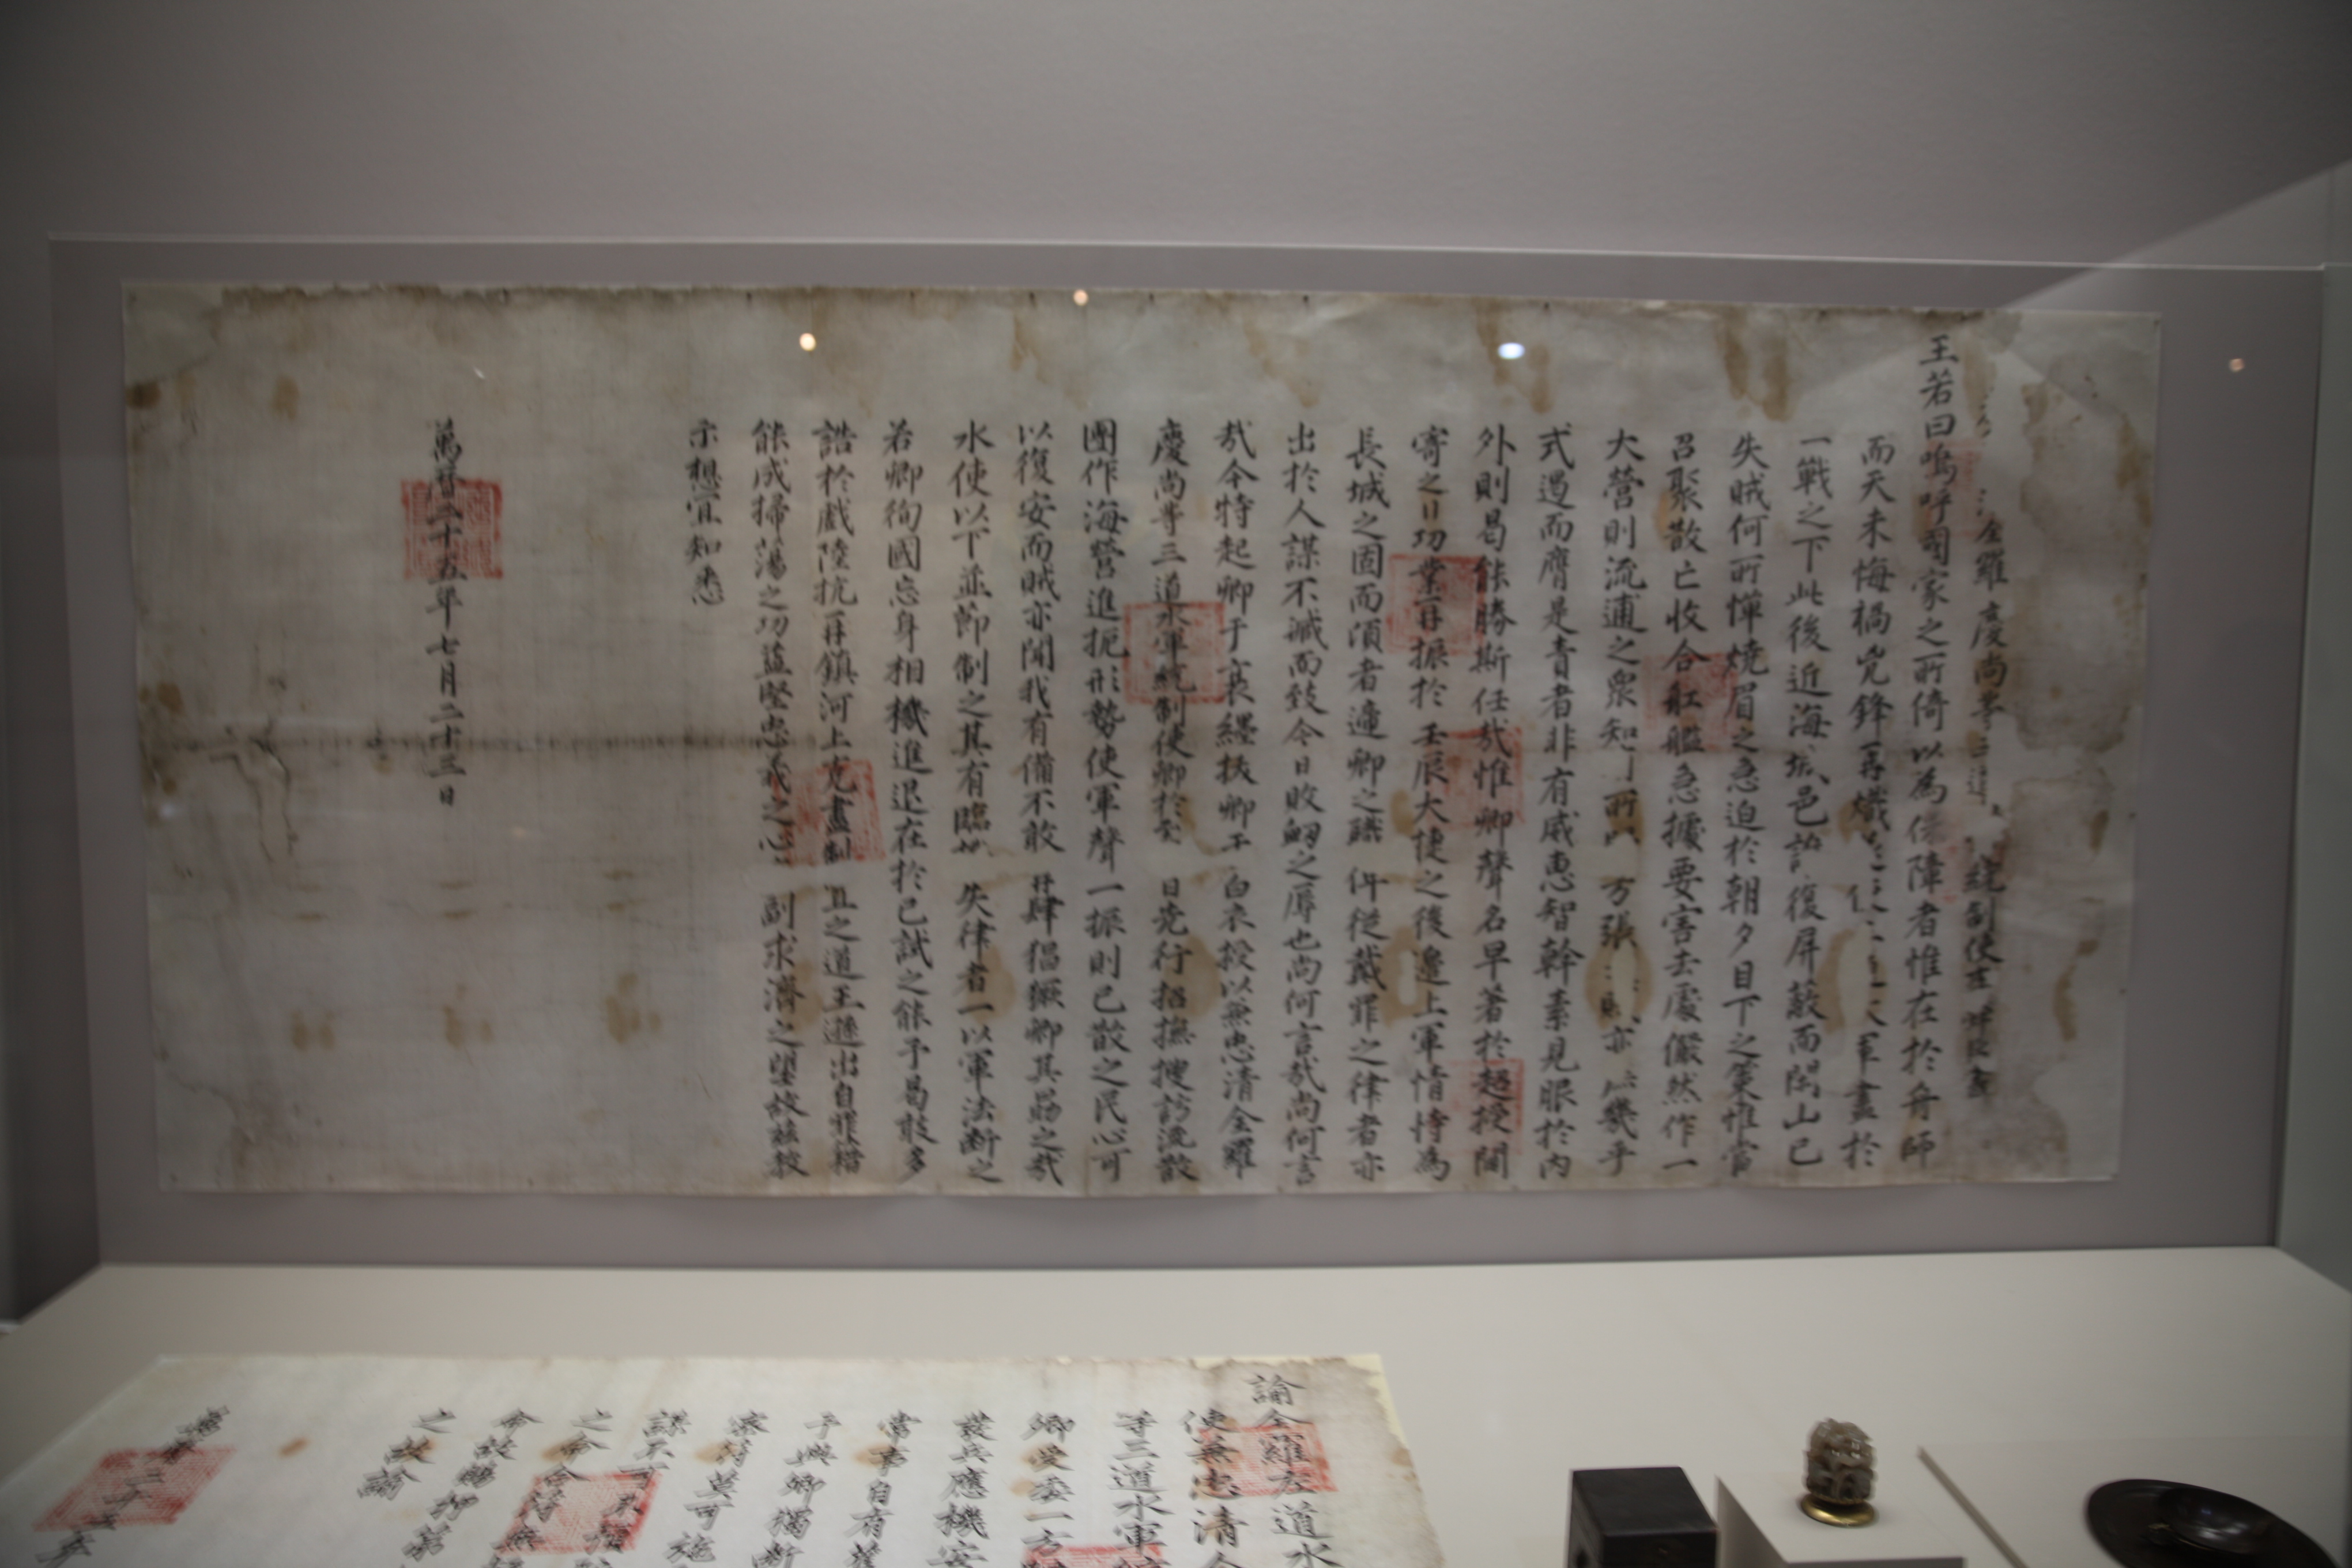 全羅慶尚等三道統制使
王若曰嗚呼國家之所倚以為保障者惟在於舟師
而天未悔禍兇鋒再熾軍盡於
一戰之下此後近海城邑誰復屏蔽而閑山已
失賊何所憚燒眉之急迫於朝夕目下之策惟當
召聚散亡收合舡艦急據要害去處儼然作一
大營則流逋之衆知所方張亦幾乎
式遏而膺是責者非有威惠智幹素見服於內
外則曷能勝斯任哉惟卿聲名早著於超授閫
寄之日功業再振於壬辰大捷之後邊上軍情恃為
長城之固而頃者遞卿之職俾從戴罪之律者亦
出於人謀不臧而致今日敗衄之辱也尚何言哉尚何言
哉今特起卿于衰絰拔卿于白衣授以兼忠清全羅
慶尚等三道水軍統制使卿於至日先行招撫搜訪流散
團作海營進扼形勢使軍聲一振則已散之民心可
以復安而賊亦聞我有備不敢再肆猖獗卿其勗之哉
水使以下並節制之其有臨失律者一以軍法斷之
若卿徇國忘身相機進退在於已試之能予曷敢多
誥於戲陸抗再鎮河上克盡制置之道王遜出自罪籍
能成掃蕩之功益堅忠義之心副求濟之望故茲教
示想宜知悉
萬曆二十五年七月二十三日
諭全羅左道水
使兼忠清全
等三道水軍統
卿受委一方
發兵應機安
常事自有舊
予與卿獨斷
家符莫可施
謀不可不
之命合符無
命故賜押第
之故諭
萬曆二十五年